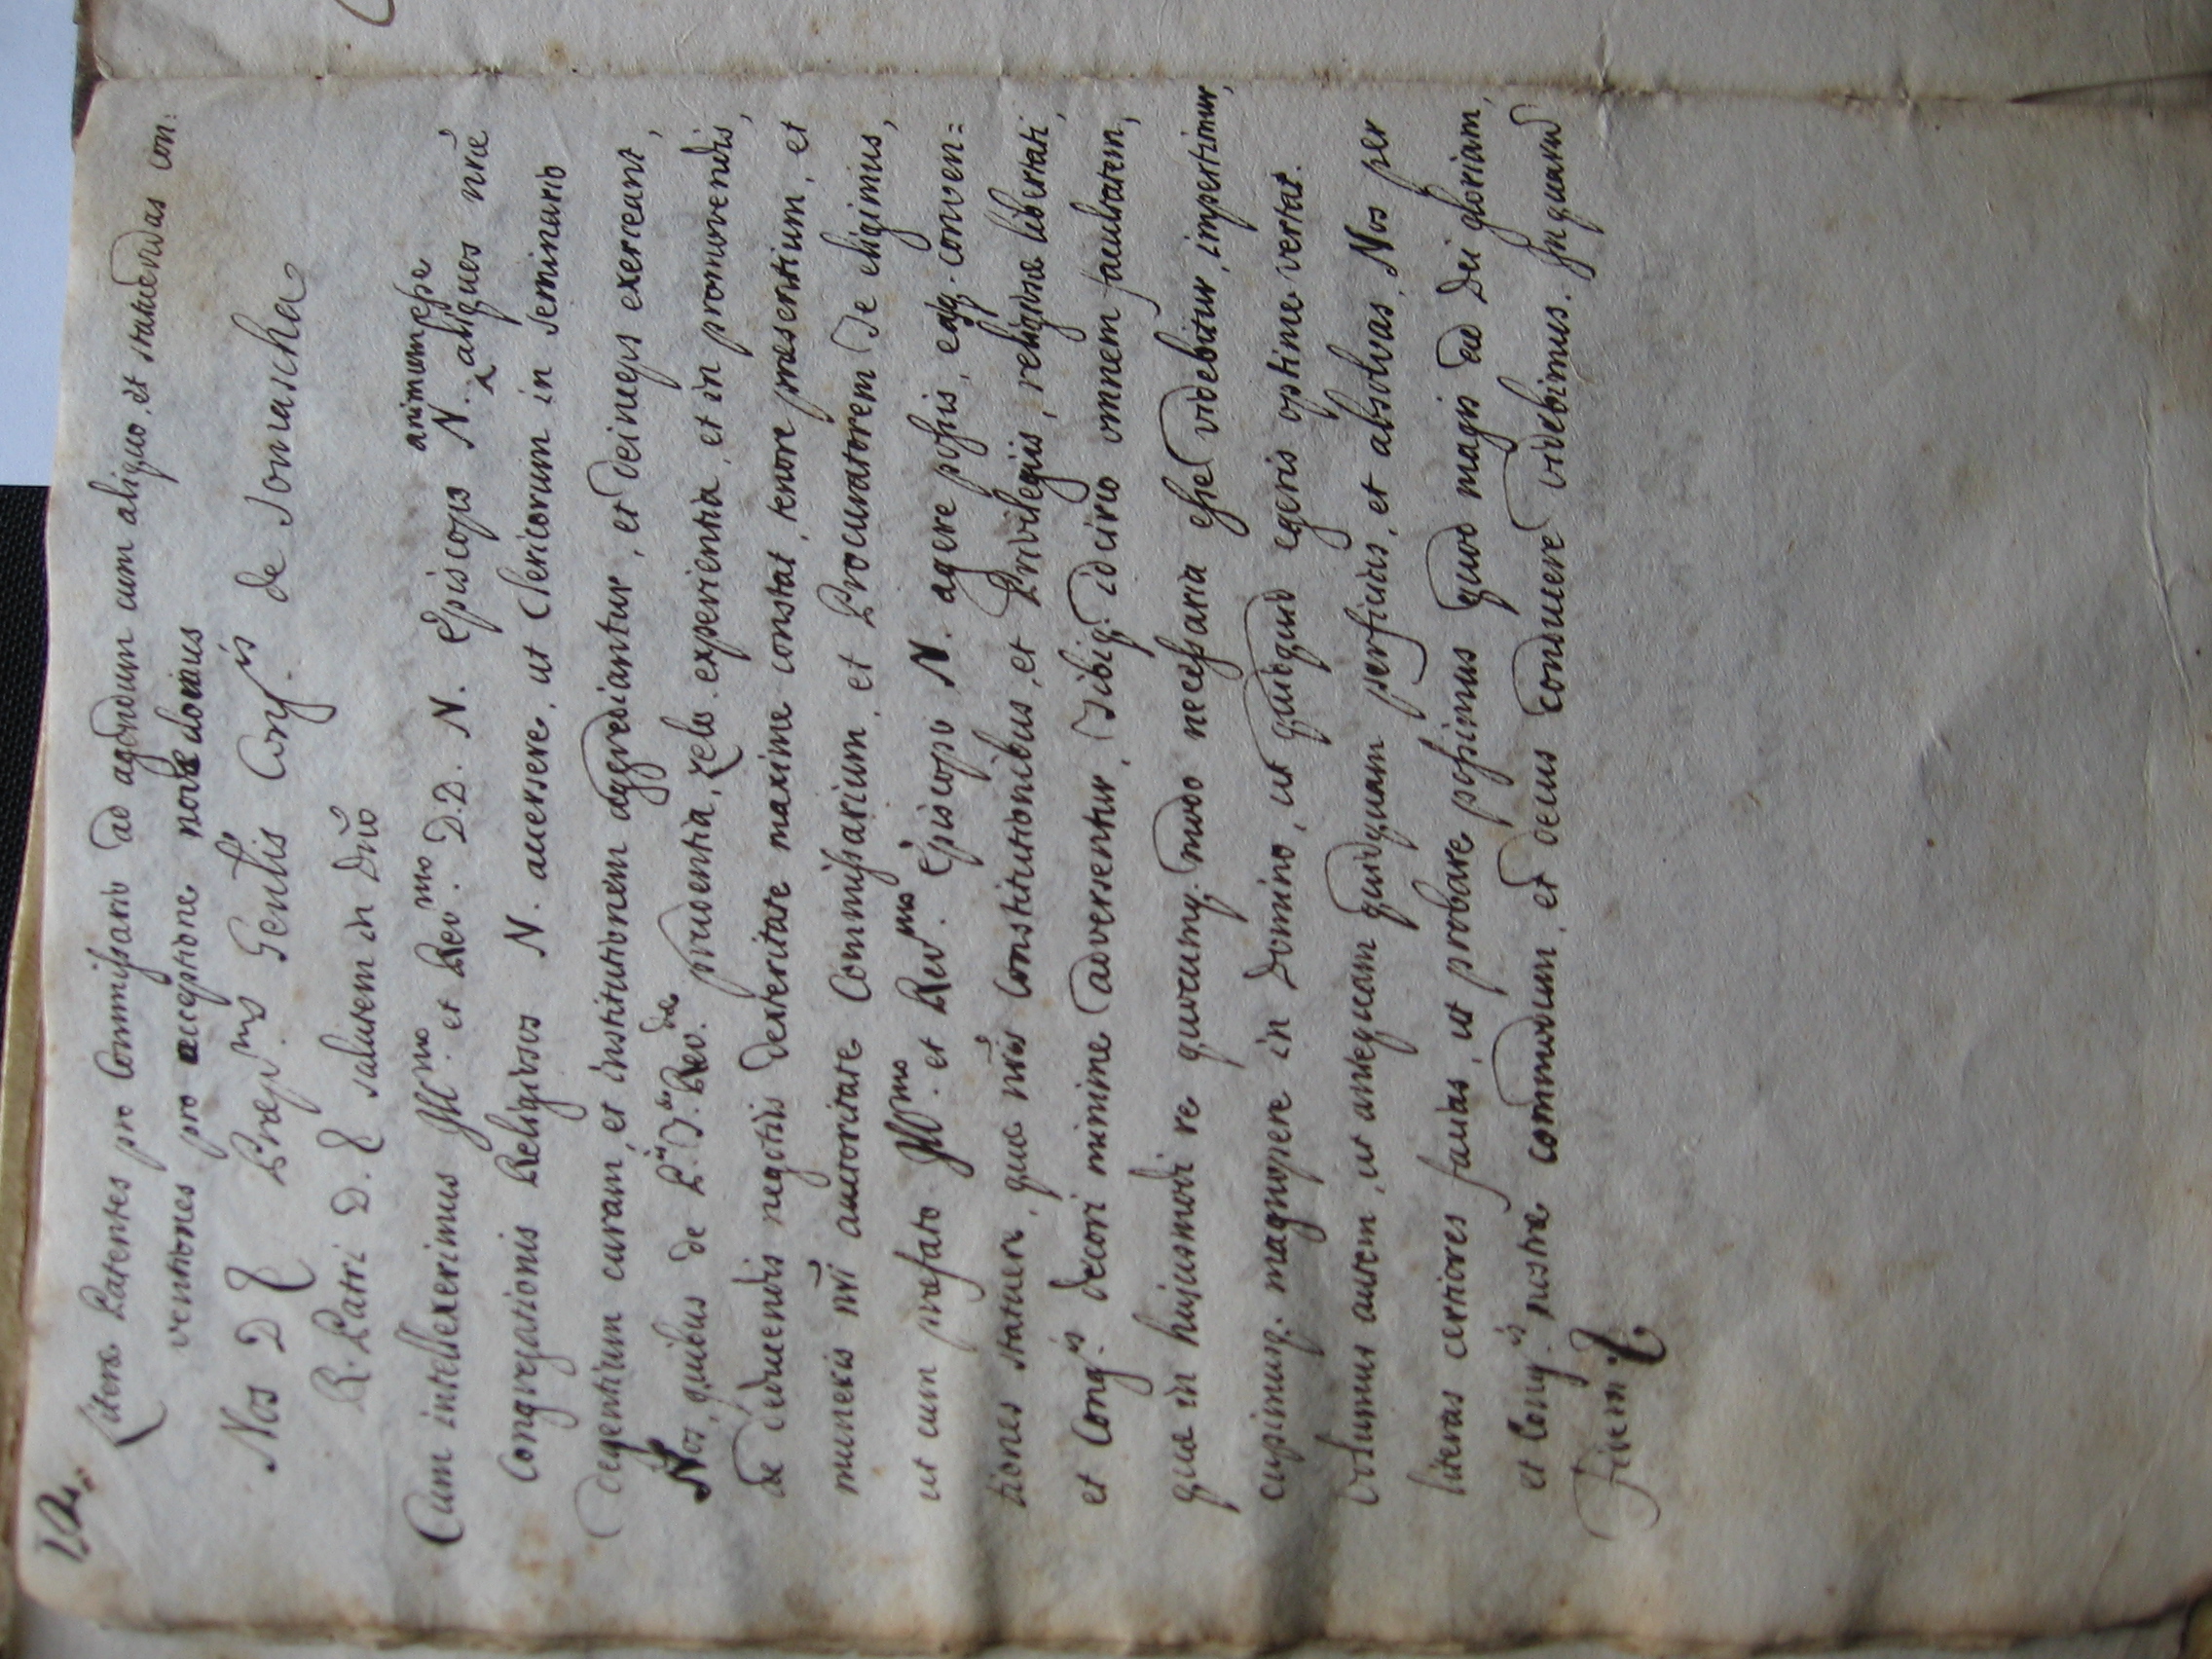 Literæ Patentes pro Commissario ad agendum cum aliquo, et statuendas con:
ventiones pro acceptione novæ domus
Nos D. Præpus Genlis Congis de Somascha
R. Patri D. salutem in Dno
animum esse
Cum intellexerimus Illmo. et Revmo. D.D. N. Episcopo N. aliquos nræ
Congregationis Religiosos N. accersere, ut Clericorum in Seminario
degentium curam, et institutionem aggrediantur, et deinceps exerceant,
Nos, quibus de Revdæ. prudentia, zelo, experientia, et in promovendis,
de deducendis negotiis dexteritate maxime constat, tenore præsentium, et
muneris nri auctoritate Commissarium, et Procuratorem Te eligimus,
ut cum præfato Illmo. et Revmo. Episcopo N. agere possis, easq. conven=
tiones statuere, quæ nris Constitutionibus, et Privilegiis, religiosæ libertati,
et Congis. decori minime adversentur, Tibiq. idcirco omnem facultatem,
quæ in hujusmodi re quocumq. modo necessaria esse videbitur, impertimur,
cupimusq. magnopere in Domino, ut quidquid egeris optime vertat.
Volumus autem, ut antequam quidquam perficias, et absolvas, Nos per
literas certiores facias, ut probare possimus quod magis ad Dei gloriam,
et Congis. nostræ commodum, et decus conducere videbimus. In quarum
Fidem &.